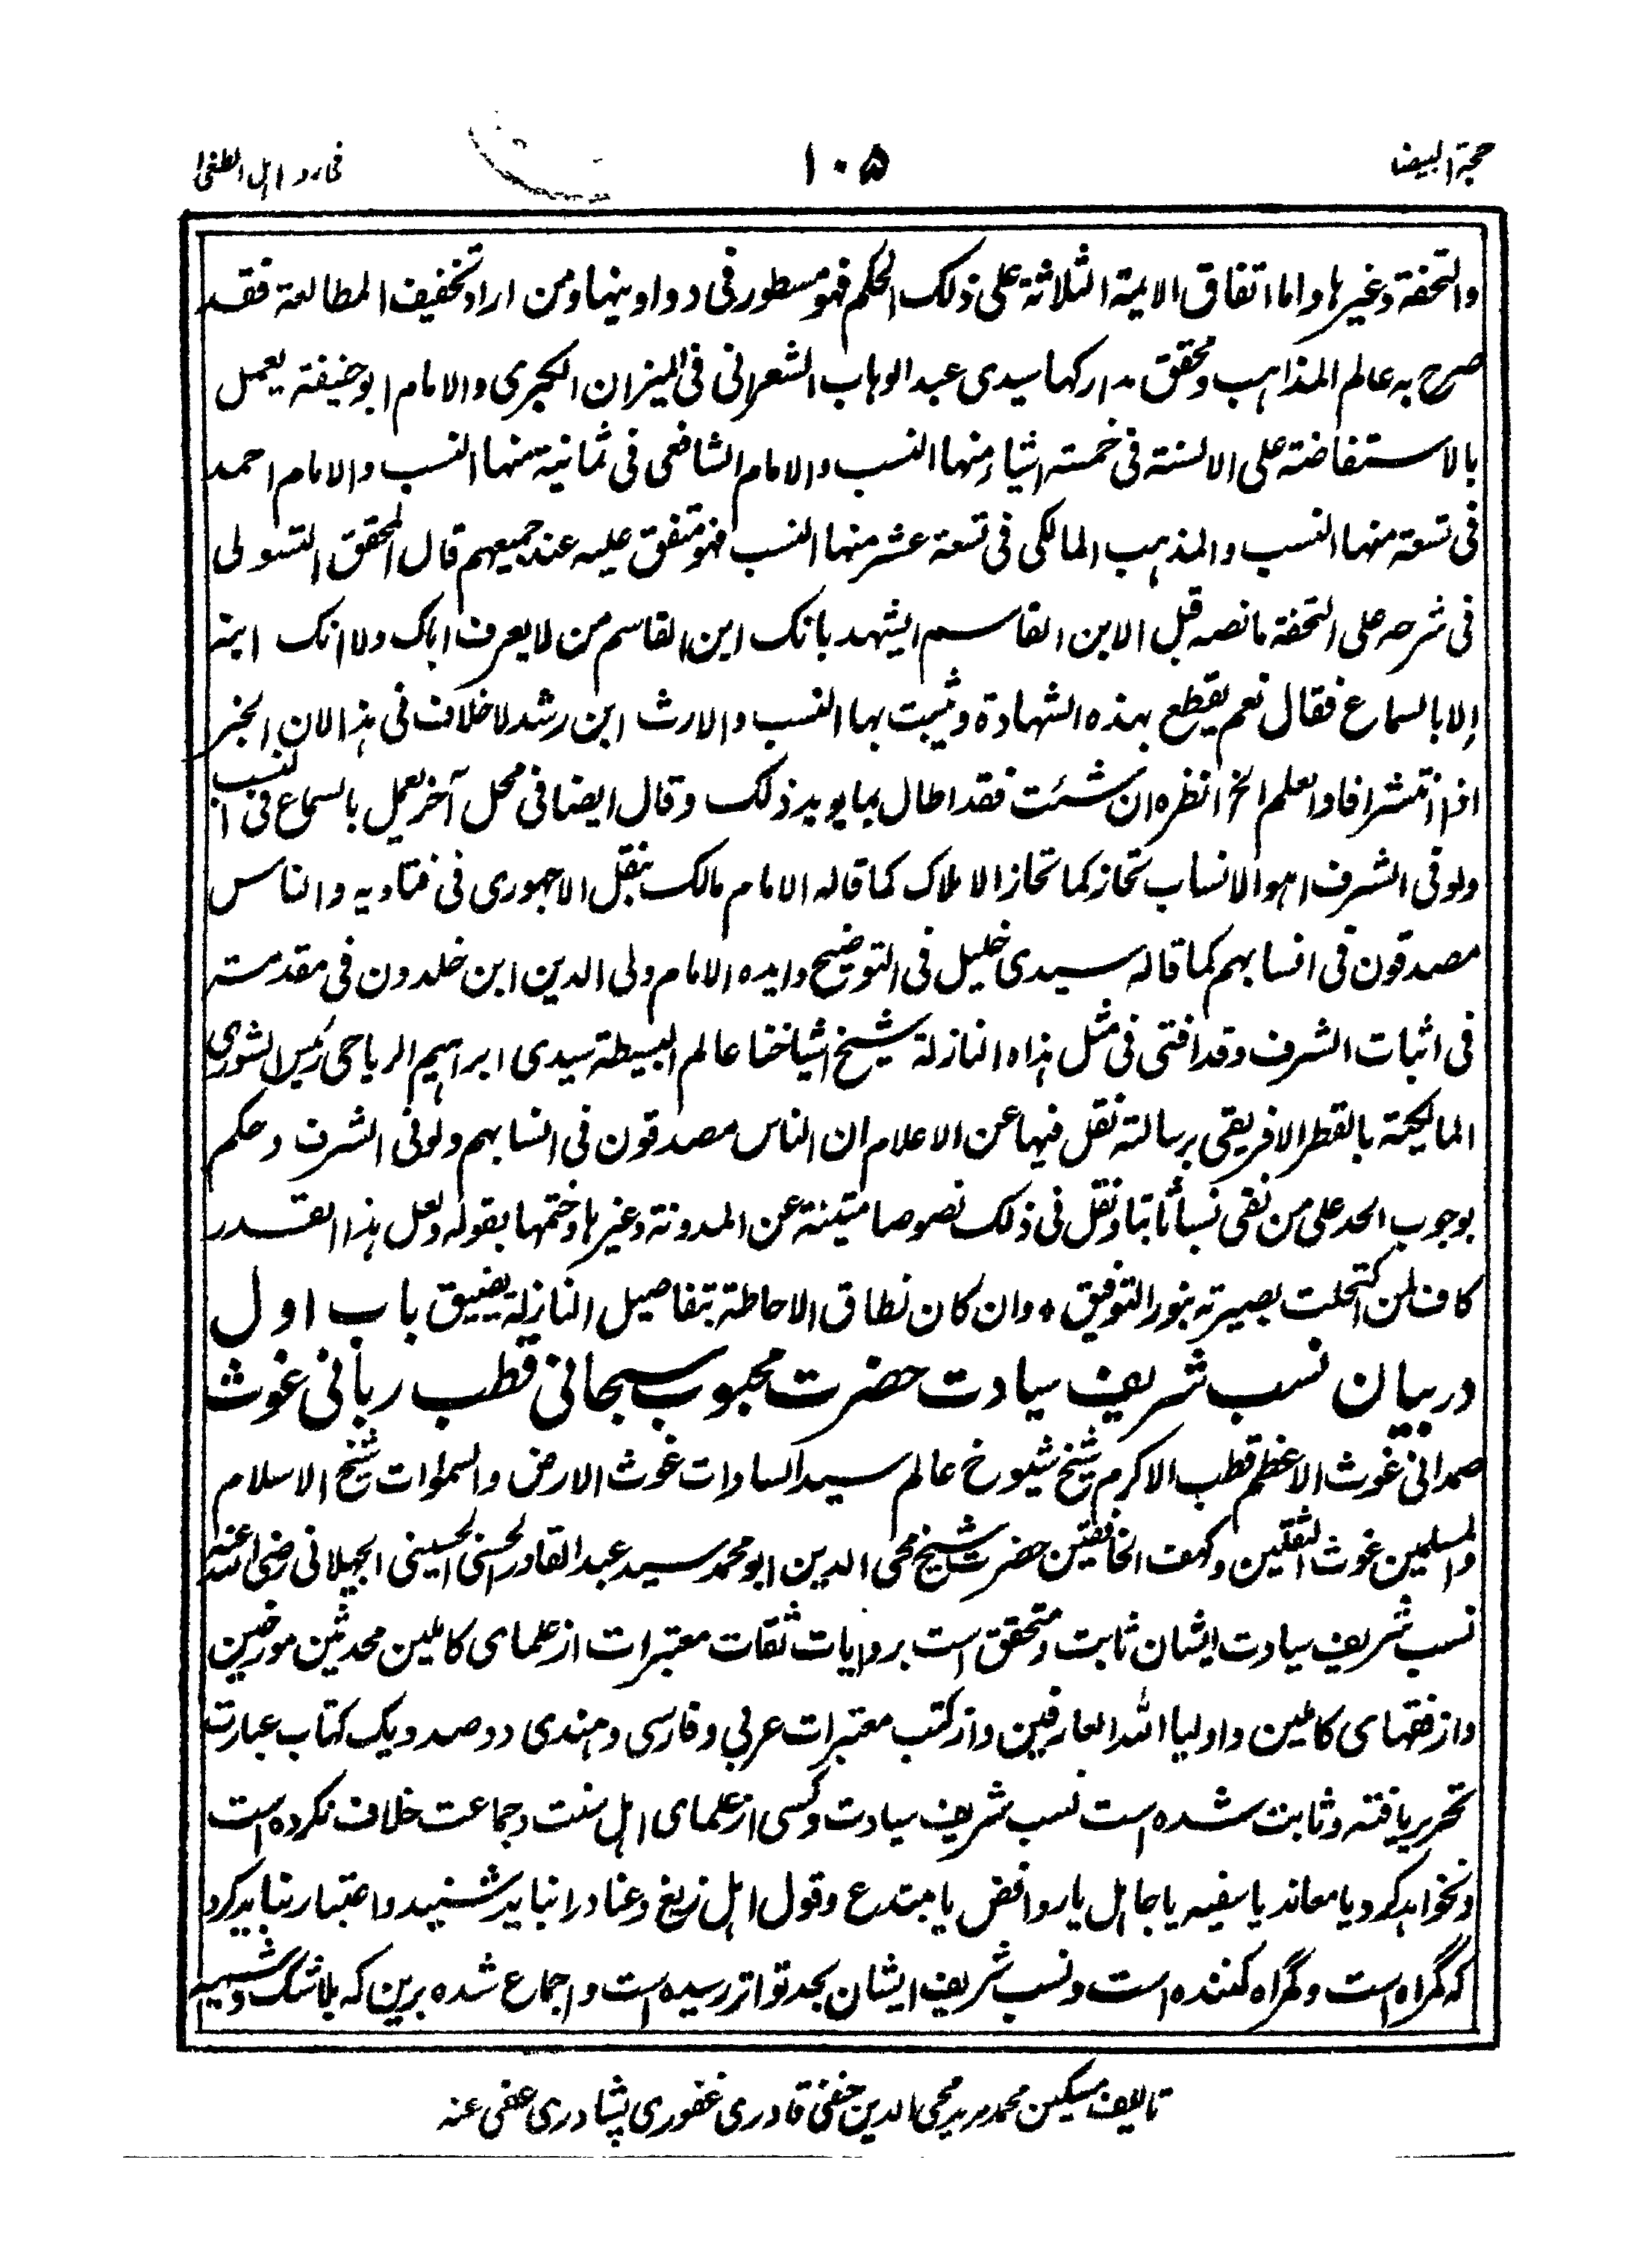 حجة البيضا
١٠٥
فى رد اہل الطغیٰ
والتحفة وغيرها واما اتفاق الايمة الثلاثة على ذلك الحكم فهو مسطور فى دواوينها ومن اراد تخفيف المطالعة فقد
صرح به عالم المذاهب ومحقق مداركها سيدى عبد الوهاب الشعرانى فى الميزان الكبرى والامام ابو حنيفة يعمل
بالاستفاضة على الالسنة فى خمسة اشياء منها النسب والامام الشافعى فى ثمانية منها النسب والامام احمد
فى تسعة منها النسب والمذهب المالكى فى تسعة عشر منها النسب فهو متفق عليه عند جميعهم قال المحقق التسولى
فى شرحه على التحفة ما نصه قيل الابن القاسم ايشهد بانك ابن القاسم من لا يعرف اباك ولا انك ابنه
الا بالسماع فقال نعم يقطع بهذه الشهادة ويثبت بها النسب والارث ابن رشد لا خلاف فى هذا لان الخبر
اذا انتشر افاد العلم الخ انظره ان شئت فقد اطال بما يويد ذلك وقال ايضا فى محل آخر يعمل بالسماع فى النسب
ولو فى الشرف اهو الانساب تحاز كما تحاز الاملاك كما قاله الامام مالك بنقل الاجهورى فى فتاويه والناس
مصدقون فى انسابهم كما قاله سيدى خليل فى التوضيح وايده الامام ولى الدين ابن خلدون فى مقدمته
فى اثبات الشرف وقد افتى فى مثل هذاه النازلة شيخ اشياخنا عالم البسيطة سيدى ابراهيم الرياحى رئيس الشورى
المالكية بالقطر الافريقى برسالته نقل فيها عن الاعلام ان الناس مصدقون فى انسابهم ولو فى الشرف وحكم
بوجوب الحد على من نفى نسبا ثابتا ونقل فى ذلك نصوصا متينة عن المدونة وغيرها وختمها بقوله ولعل هذا القدر
كاف لمن اكتحلت بصيرته بنور التوفيق ٭ وان كان نطاق الاحاطة بتفاصيل النازلة يضيق باب اول
در بیان نسب شریف سیادت حضرت محبوب سبحانی قطب ربانی غوث
صمدانی غوث الاعظم قطب الاکرم شیخ شیوخ عالم سید السادات غوث الارض والسموات شیخ الاسلام
والمسلمین غوث الثقلین وکہف الخافقین حضرت شیخ محی الدین ابو محمد سید عبد القادر الحسنی الحسینی الجیلانی رضی اللہ عنہ
نسب شریف سیادت ایشان ثابت و متحقق است بروایات ثقات معتبرات از علمای کاملین محدثین مورخین
و از فقہای کاملین و اولیا اللہ العارفین و از کتب معتبرات عربی و فارسی و ہندی دو صد و یک کتاب عبارت
تحریر یافتہ و ثابت شدہ است نسب شریف سیادت و کسی از علمای اہل سنت و جماعت خلاف نکردہ است
و نخواہد کرد یا معاند یا سفیہ یا جاہل یا روافض یا مبتدع و قول اہل زیغ و عناد را نباید شنید و اعتبار نباید کرد
کہ گمراہ است و گمراہ کنندہ است و نسب شریف ایشان بحد تواتر رسیدہ است و اجماع شدہ برین کہ بلا شک و شبہہ
تالیف مسکین محمد مرید محی الدین حنفی قادری غفوری پشاوری عفی عنہ